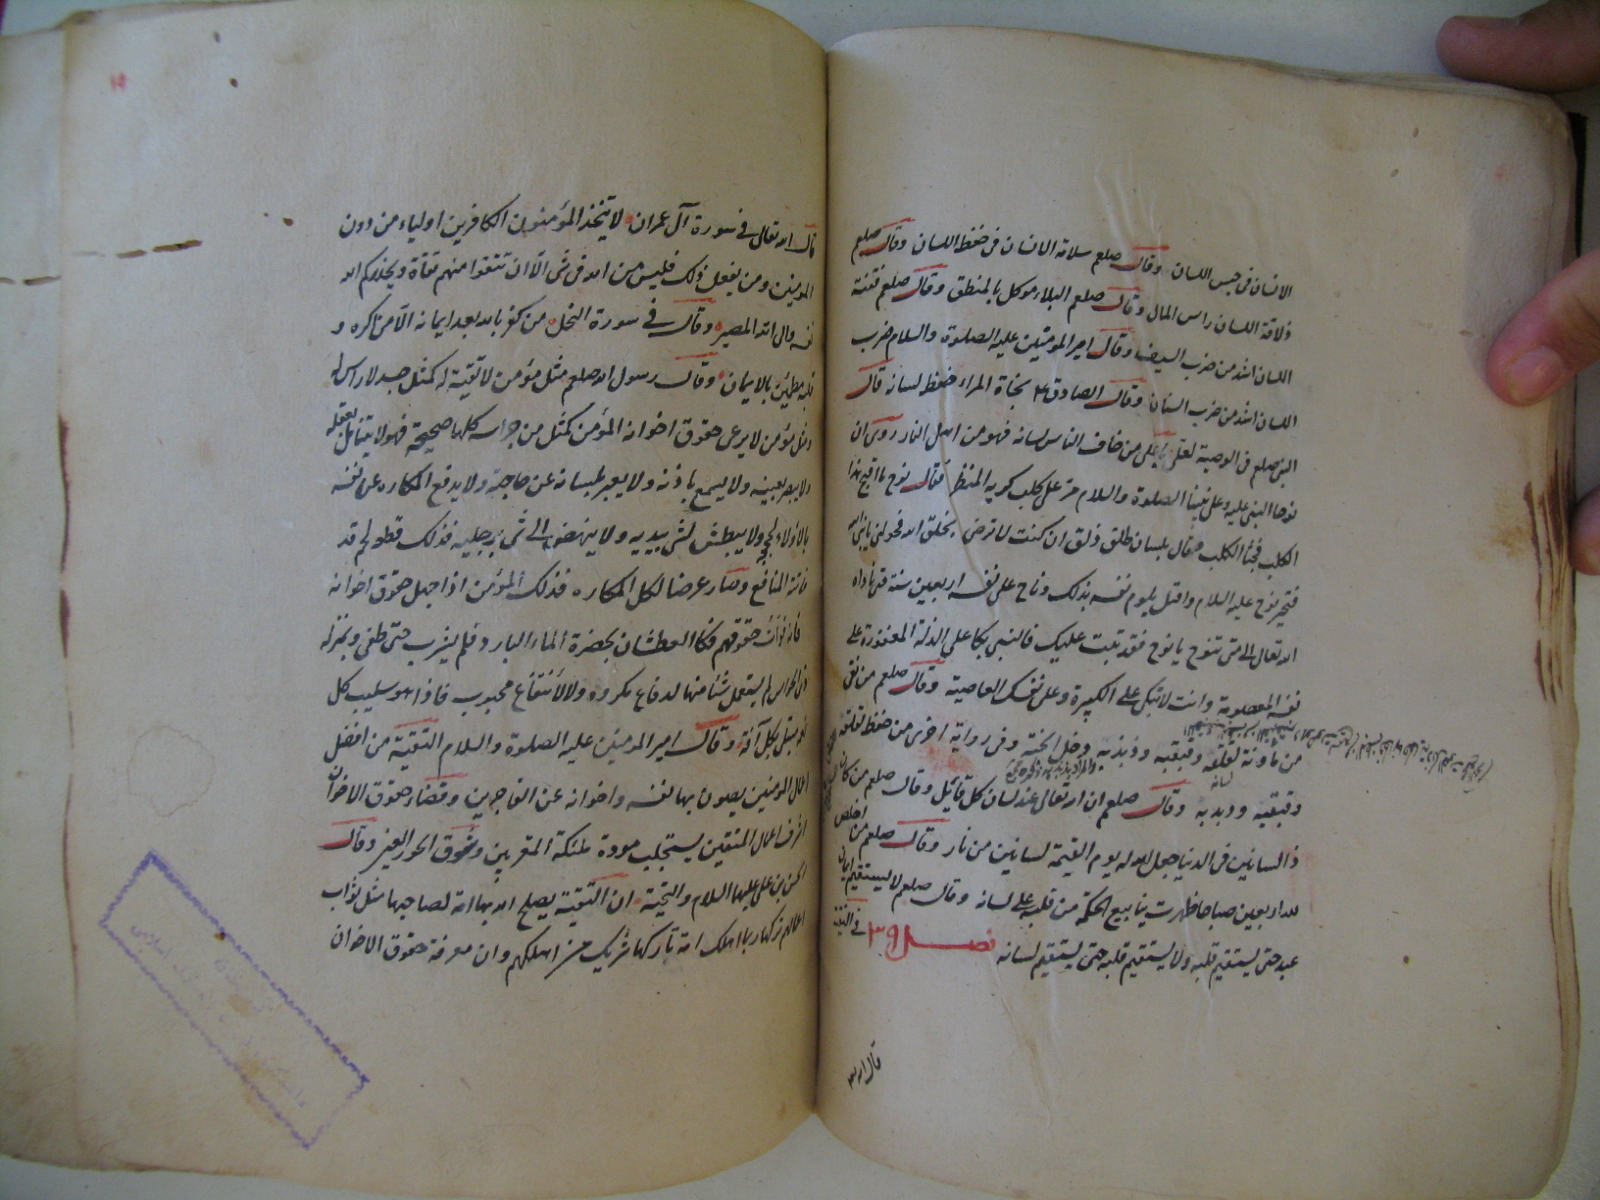 الانسان فى حبس اللسان وقال صلعم سلامة الانسان فى حفظ اللسان وقال صلعم
ذلاقة اللسان راس المال وقال صلعم البلاء موكل بالمنطق وقال صلعم فتنة
اللسان اشد من ضرب السيف وقال امير المومنين عليه الصلوة والسلام ضرب
اللسان اشد من ضرب السنان وقال الصادق ع نجاة المرء حفظ لسانه قال
النبى صلعم فى الوصية لعلى يا على من خاف الناس لسانه فهو من اهل النار روى ان
نوحا النبى عليه وعلى نبينا الصلوة والسلام مر على كلب كريه المنظر فقال نوح ما اقبح هذا
الكلب فجثا الكلب وقال بلسان طلق ذلق ان كنت لا ترضى بخلق الله فحولنى يا نبى الله
فتحير نوح عليه السلام واقبل يلوم نفسه بذلك وناح على نفسه اربعين سنة حتى ناداه
الله تعالى الى متى تنوح يا نوح فقد تبت عليك فالنبى بكا على الزلة المغفورة على
نفسه المعصومة وانت لا تبكى على الكبيرة وعلى نفسك العاصية وقال صلعم من وقى
من مؤنة لقلقه وقبقبه وذبذبه دخل الجنة وفى رواية اخرى من حفظ لقلقه
وقبقبه ودبدبه وقال صلعم ان الله تعالى عند لسان كل قائل وقال صلعم من كان
ذا لسانين فى الدنيا جعل الله له يوم القيمة لسانين من نار وقال صلعم من اخلص
لله اربعين صباحا ظهرت ينابيع الحكمة من قلبه على لسانه وقال صلعم لا يستقيم ايمان
عبد حتى يستقيم قلبه ولا يستقيم قلبه حتى يستقيم لسانه فصل ٣٩ فى التقية
قال الله
قال الله تعالى فى سورة آل عمران لا يتخذ المؤمنون الكافرين اولياء من دون
المومنين ومن يفعل ذلك فليس من الله فى شى الا ان تتقوا منهم تقاة ويحذركم الله
نفسه والى الله المصير وقال فى سورة النحل من كفر بالله بعد ايمانه الا من اكره و
قلبه مطمئن بالايمان وقال رسول الله صلعم مثل مؤمن لا تقية له كمثل جسد لا راس له
ومثل مؤمن لا يرعى حقوق اخوانه المؤمن كمثل من حواسه كلها صحيحة فهو لا يتامل بعقله
ولا يبصر بعينه ولا يسمع باذنه ولا يعبر بلسانه عن حاجته ولا يدفع المكاره عن نفسه
بالادلاء بحججه ولا يبطش لشى بيديه ولا ينهض الى شى برجليه فذلك قطعة لحم قد
فاتته المنافع وصار عرضا لكل المكاره فذلك المؤمن اذا جهل حقوق اخوانه
فاته ثواب حقوقهم فكان العطشان بحضرة الماء البارد فلم يشرب حتى طفى وبمنزلة
ذى الحواس لم يستعمل شئا منها لدفاع مكروه ولا لانتفاع محبوب فاذا هو سليب كل
نعمة مبتلى بكل آفة وقال امير المومنين عليه الصلوة والسلام التقية من افضل
اعمال المومنين يصون بها نفسه واخوانه عن الفاجرين وقضاء حقوق الاخوان
اشرف اعمال المتقين يستجلب مودة ملئكة المقربين وشوق الحور العين وقال
الحسن بن على عليها السلام والتحية ان التقية يصلح الله بها امة لصاحبها مثل ثواب
اعمالهم تركها ربما اهلك امة تاركها شريك من اهلكهم وان معرفة حقوق الاخوان